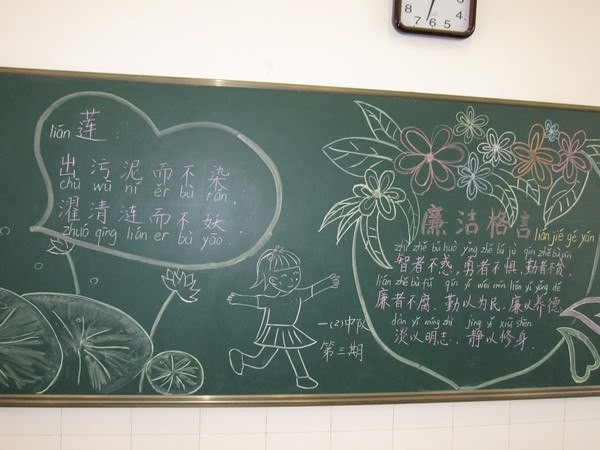 lián 莲：
出污泥而不染，
chū wū ní ér bù rǎn,
濯清涟而不妖。
zhuó qīng lián er bù yāo.
一(2)中队
第三期
廉洁格言
lián jié gé yán
zhì zhě bù huò yǒng zhě bù jù qín zhě bù pín
智者不惑，勇者不惧，勤者不贫
lián zhě bù fǔ qín yǐ wéi mín lián yǐ yǎng dé
廉者不腐．勤以为民．廉以养德
dàn yǐ míng zhì jìng yǐ xiū shēn
淡以明志．静以修身．